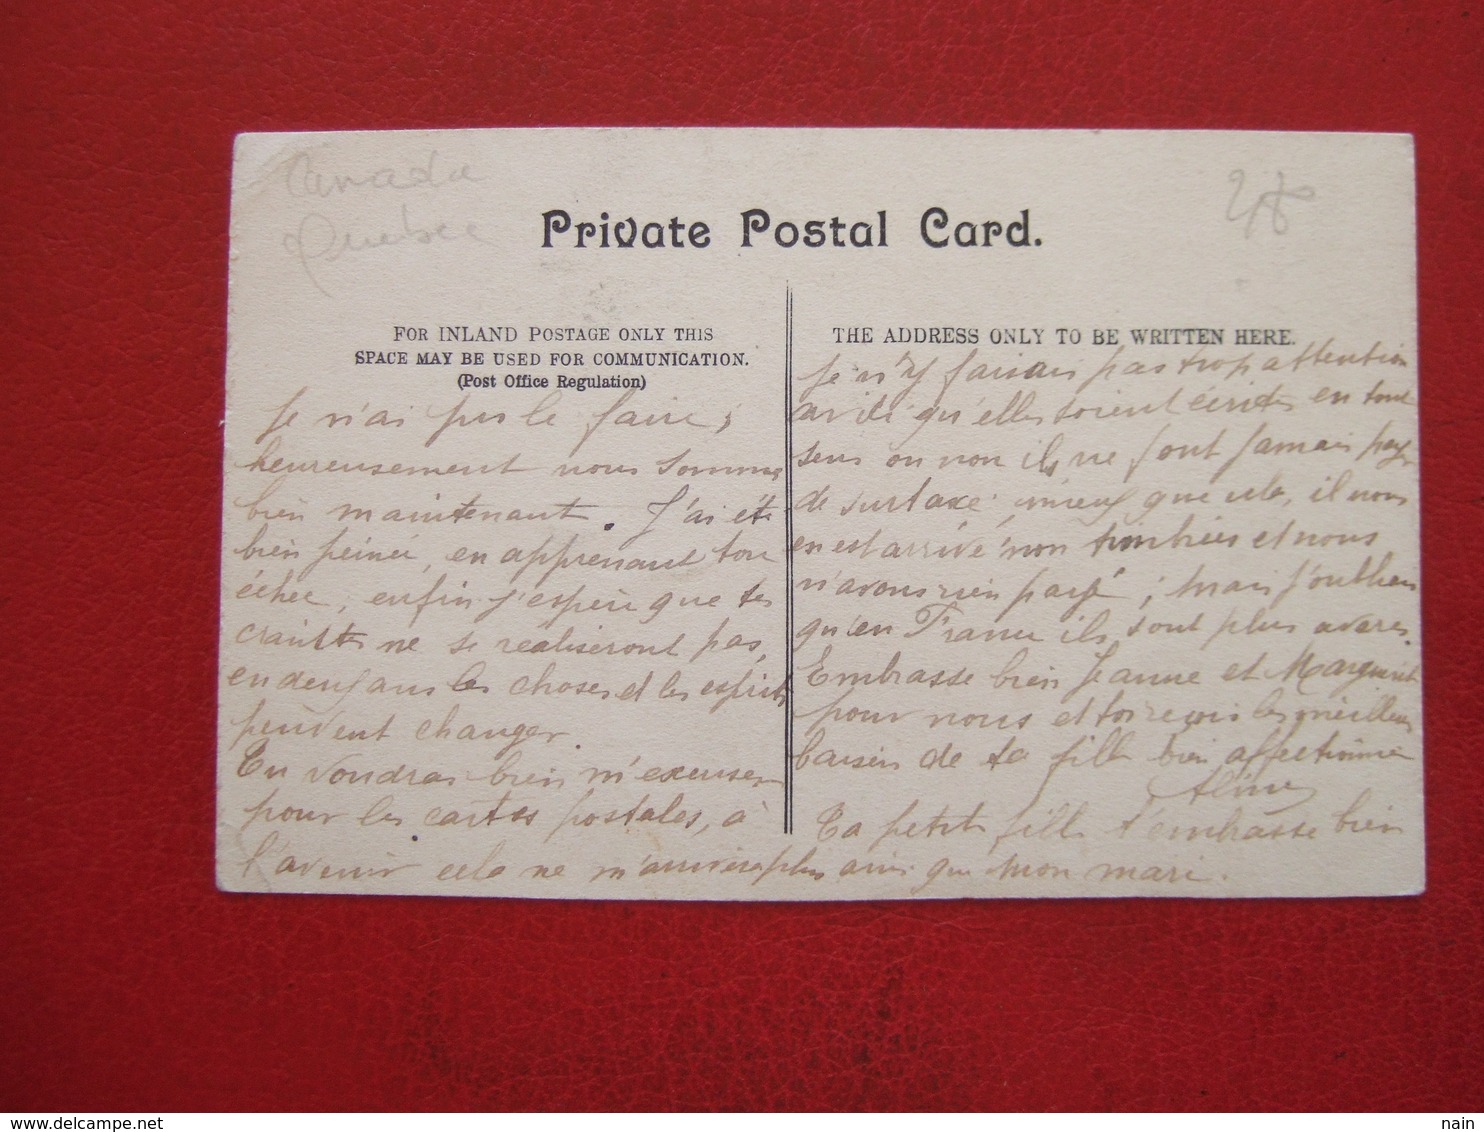 Canada
Quebec
Private Postal Card.
FOR INLAND POSTAGE ONLY THIS
SPACE MAY BE USED FOR COMMUNICATION.
(Post Office Regulation)
Je n'ai pu le faire,
heureusement nous sommes
bien maintenant. J'ai été
bien peinée, en apprenant ton
échec, enfin j'espère que tes
craintes ne se réaliseront pas,
en deux ans les choses et les esprits
peuvent changer.
Tu voudras bien m'excuser
pour les cartes postales, à
l'avenir cela ne m'arrivera plus
THE ADDRESS ONLY TO BE WRITTEN HERE.
Je n'y faisais pas trop attention
qu'elles soient écrites en tout
sens ou non ils ne font jamais payer
de surtaxe, mieux que cela, il nous
en est arrivé non timbrées et nous
n'avons rien payé; mais j'oubliais
qu'en France ils sont plus avares.
Embrasse bien Jeanne et Marguerite
pour nous et toi reçois les meilleurs
baisers de ta fille bien affectionnée
Aline
Ta petite fille t'embrasse bien
ainsi que mon mari.
www.delcampe.net
nain